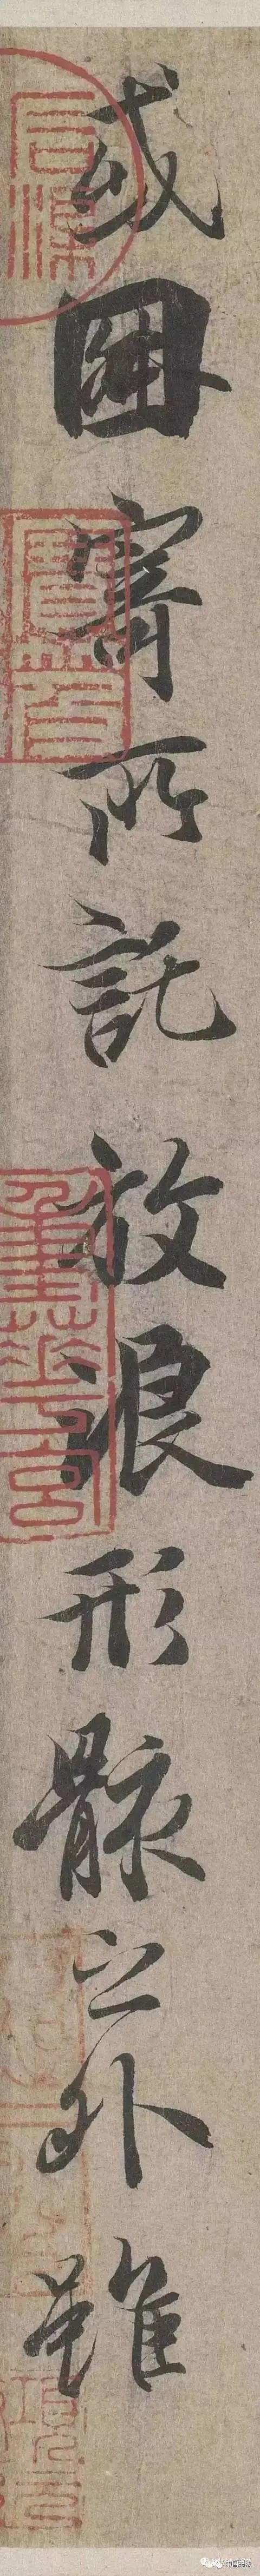 或因寄所託放浪形骸之外雖